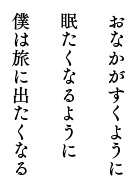 おなかがすくように
眠たくなるように
僕は旅に出たくなる